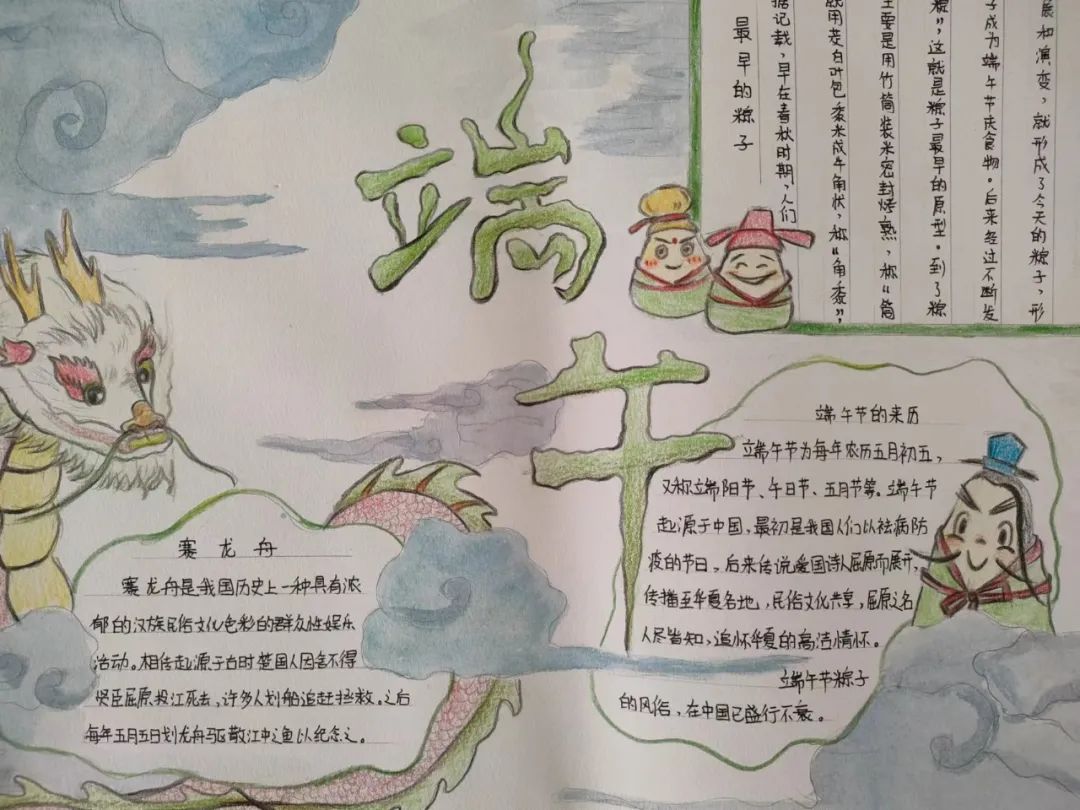 端
午
最早的粽子
据记载，早在春秋时期，人们
就用茭白叶包黍米成牛角状，称“角黍”，
主要是用竹筒装米密封烤熟，称“筒
粽”，这就是粽子最早的原型。到了粽
子成为端午节庆食物。后来经过不断发
展和演变，就形成了今天的粽子，形
端午节的来历
端午节为每年农历五月初五，
又称端阳节、午日节、五月节等。端午节
起源于中国，最初是我国人们以祛病防
疫的节日，后来传说爱国诗人屈原而展开，
传播至华夏各地，民俗文化共享，屈原之名
人尽皆知，追怀华夏的高洁情怀。
端午节粽子
的风俗，在中国已盛行不衰。
赛龙舟
赛龙舟是我国历史上一种具有浓
郁的汉族民俗文化色彩的群众性娱乐
活动。相传起源于古时楚国人因舍不得
贤臣屈原投江死去，许多人划船追赶拯救。之后
每年五月五日划龙舟驱散江中之鱼以纪念之。